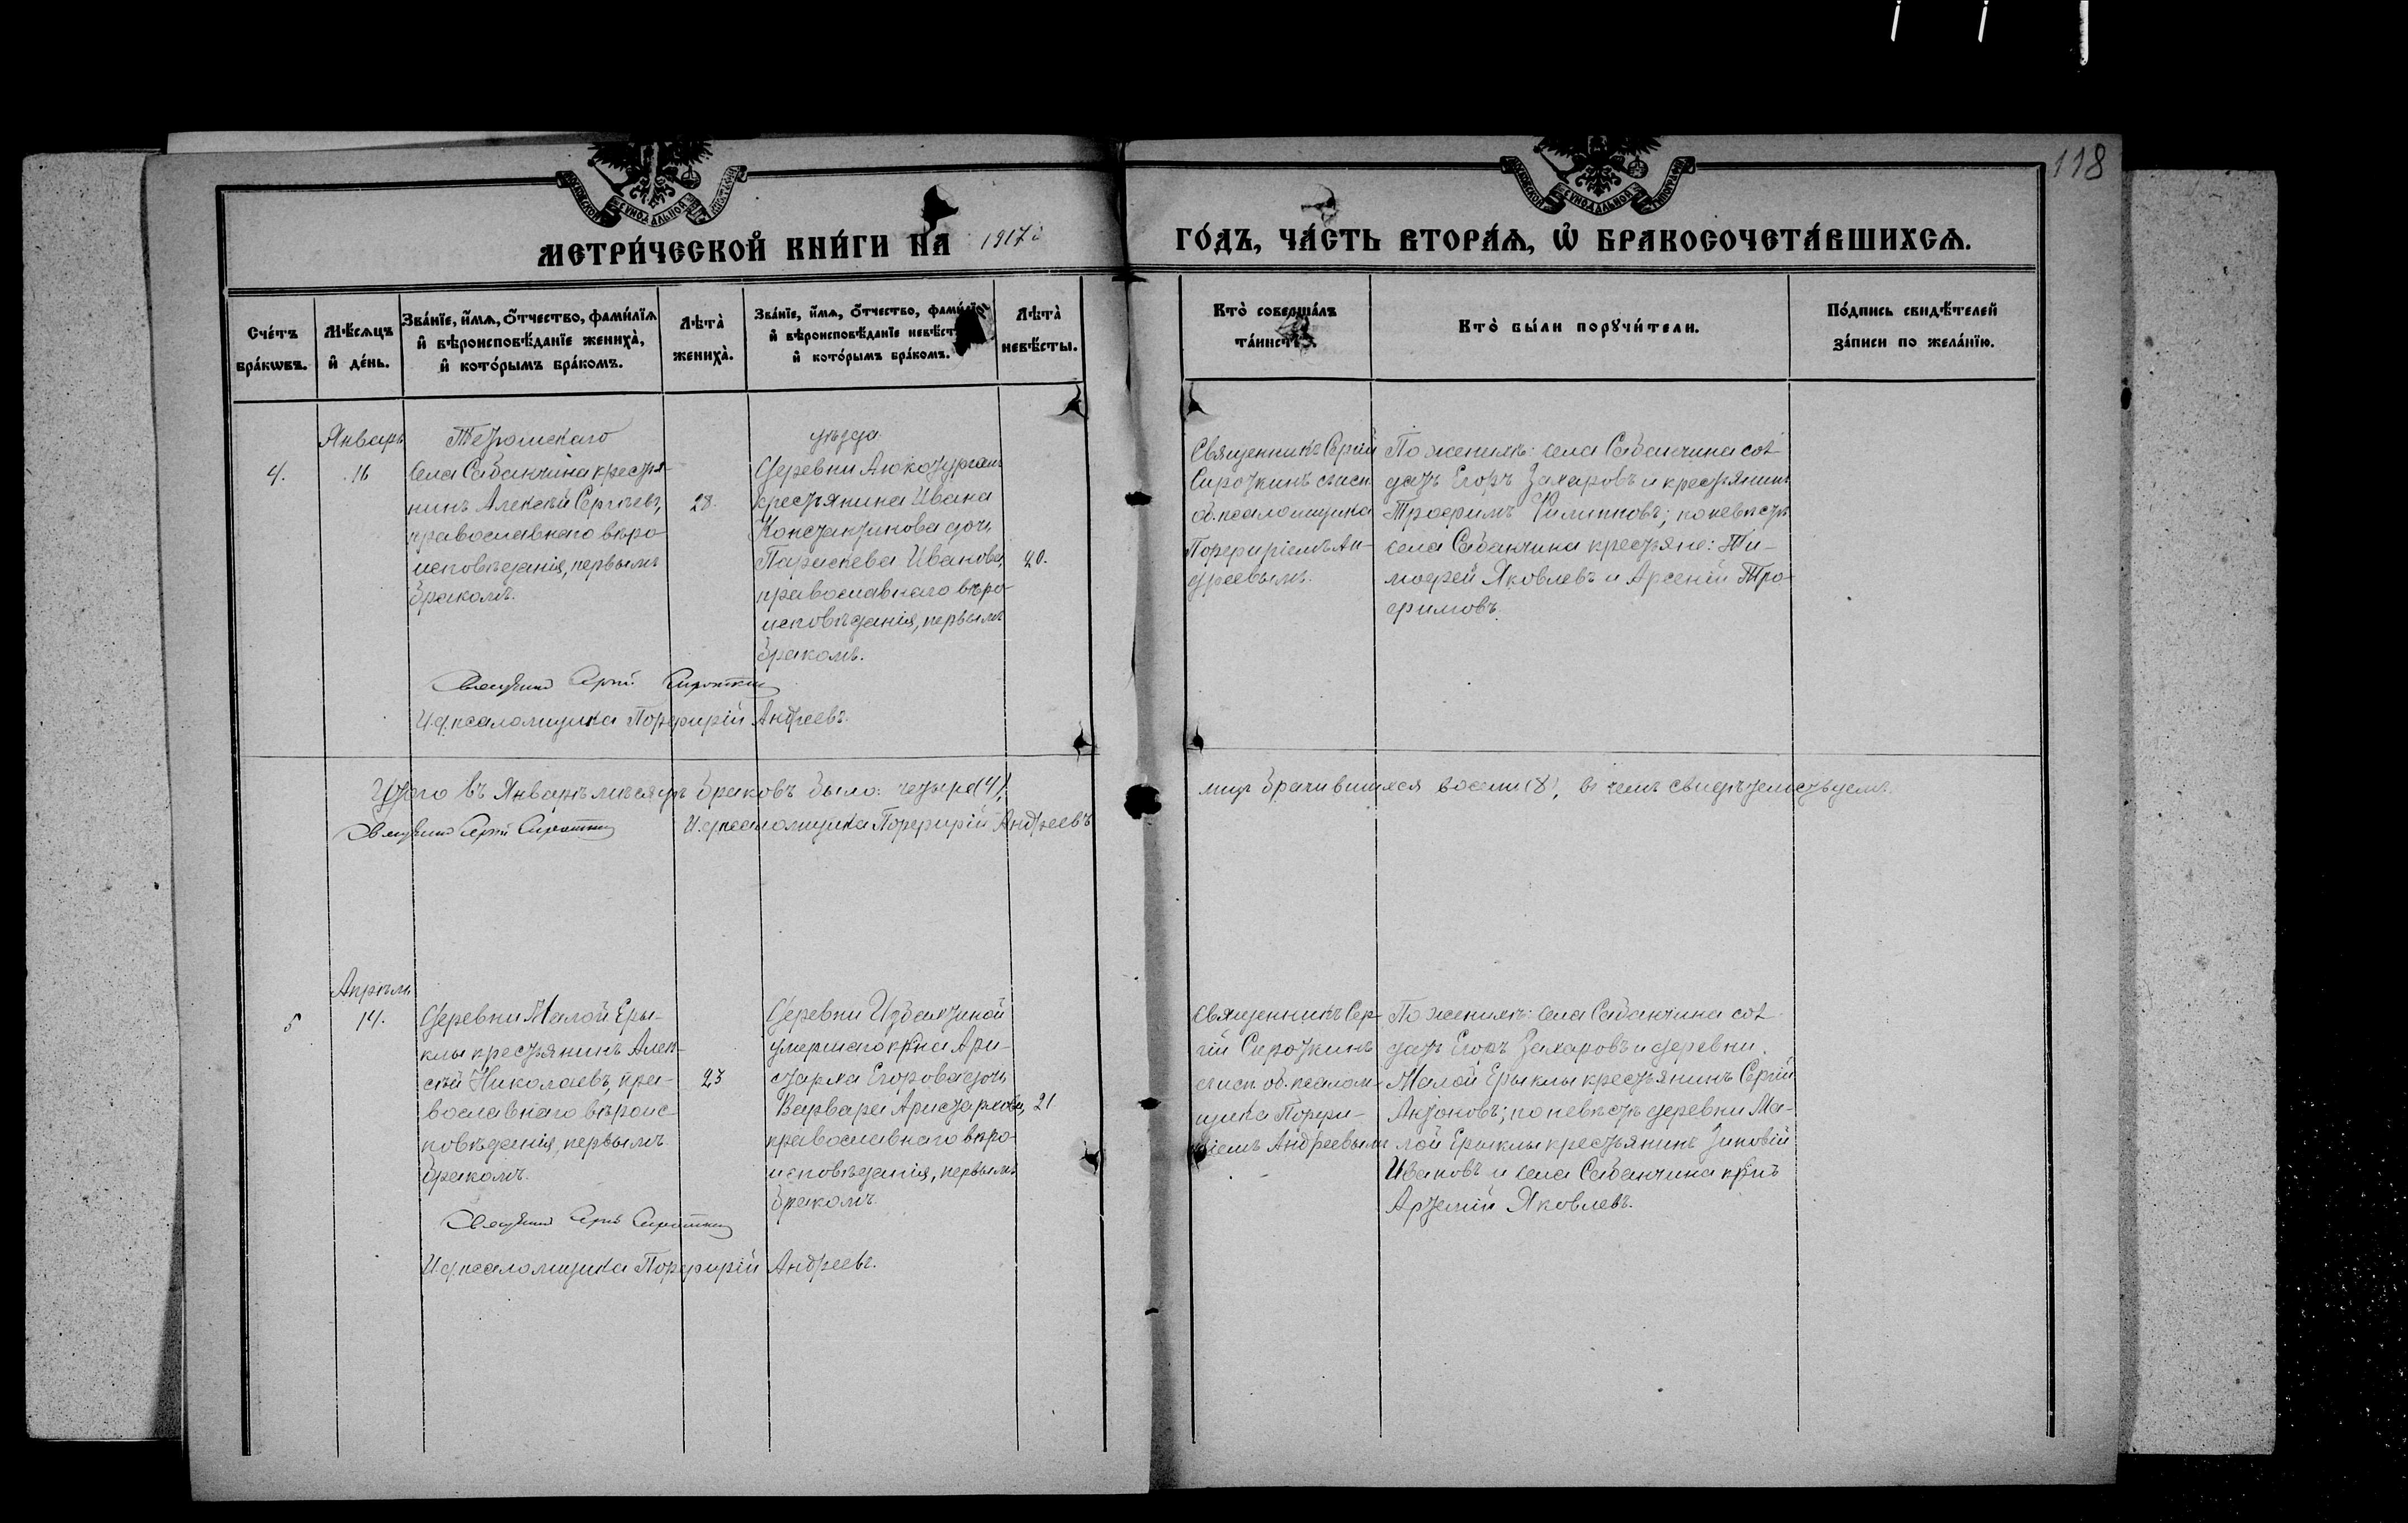 118
МОСКОВСКОЙ СѴНОДАЛЬНОЙ ТИПОГРАФІИ
МОСКОВСКОЙ СѴНОДАЛЬНОЙ ТИПОГРАФІИ
МЕТРИ́ЧЕСКОЙ КНИ́ГИ НА 1917 й
ГО́ДЪ, ЧА́СТЬ ВТОРА́Ѧ, Ѽ БРАКОСОЧЕТА́ВШИХСѦ.
Сче́тъ
бра́кѡвъ.
Мѣ́сѧцъ
и҆ де́нь.
Зва́нїе, и҆́мѧ, ѻ҆́тчество, фами́лїѧ
и҆ вѣроисповѣ́данїе женихà,
и҆ кото́рымъ бра́комъ.
Лѣ̑та
женихà.
Зва́нїе, и҆́мѧ, ѻ҆́тчество, фами́лїѧ
и҆ вѣроисповѣ́данїе невѣ́сты,
и҆ кото́рымъ бра́комъ.
Лѣ̑та
невѣ́сты.
Кто̀ соверша́лъ
та́инство.
Кто̀ бы́ли порꙋчи́тели.
По́дпись свидѣ́телей
за́писи по жела́нїю.
Январь
Тетюшскаго
уѣзда
4.
16
Села Сабанчина крестья-
нинъ Алексѣй Сергѣевъ,
православнаго вѣро-
исповѣданія, первымъ
бракомъ.
28.
Деревни Аюкозурганъ
крестьянина Ивана
Константинова дочь
Параскева Иванова,
православнаго вѣро-
исповѣданія, первымъ
бракомъ.
20.
Священникъ Сергій
Сироткинъ съ исп.
об. псаломщика
Порфиріемъ Ан-
дреевымъ.
По женихѣ: села Сабанчина сол-
датъ Егоръ Захаровъ и крестьянинъ
Трофимъ Филипповъ; по невѣстѣ
села Сабанчина крестьяне: Ти-
мофей Яковлевъ и Арсеній Тро-
фимовъ.
Священникъ Сергій Сироткинъ
И.д. псаломщика Порфирій Андреевъ.
Итого въ Январѣ мѣсяцѣ браковъ было: четыре (4),
лицъ брачившихся восемь (8), въ чемъ свидѣтельствуемъ.
Священникъ Сергій Сироткинъ И.д. псаломщика Порфирій Андреевъ
Апрѣль
5
14.
Деревни Малой Еры-
клы крестьянинъ Алек-
сѣй Николаевъ, пра-
вославнаго вѣроис-
повѣданія, первымъ
бракомъ.
23
Деревни Избахтиной
умершаго кр-на Ари-
старха Егорова дочь
Варвара Аристархова,
православнаго вѣро-
исповѣданія, первымъ
бракомъ.
21
Священникъ Сер-
гій Сироткинъ
съ исп. об. псалом-
щика Порфи-
ріемъ Андреевымъ
По женихѣ: села Сабанчина сол-
датъ Егоръ Захаровъ и деревни
Малой Ерыклы крестьянинъ Сергій
Антоновъ; по невѣстѣ деревни Ма-
лой Ерыклы крестьянинъ Зиновій
Ивановъ и села Сабанчина кр-нъ
Артемій Яковлевъ.
Священникъ Сергій Сироткинъ
И.д. псаломщика Порфирій Андреевъ.